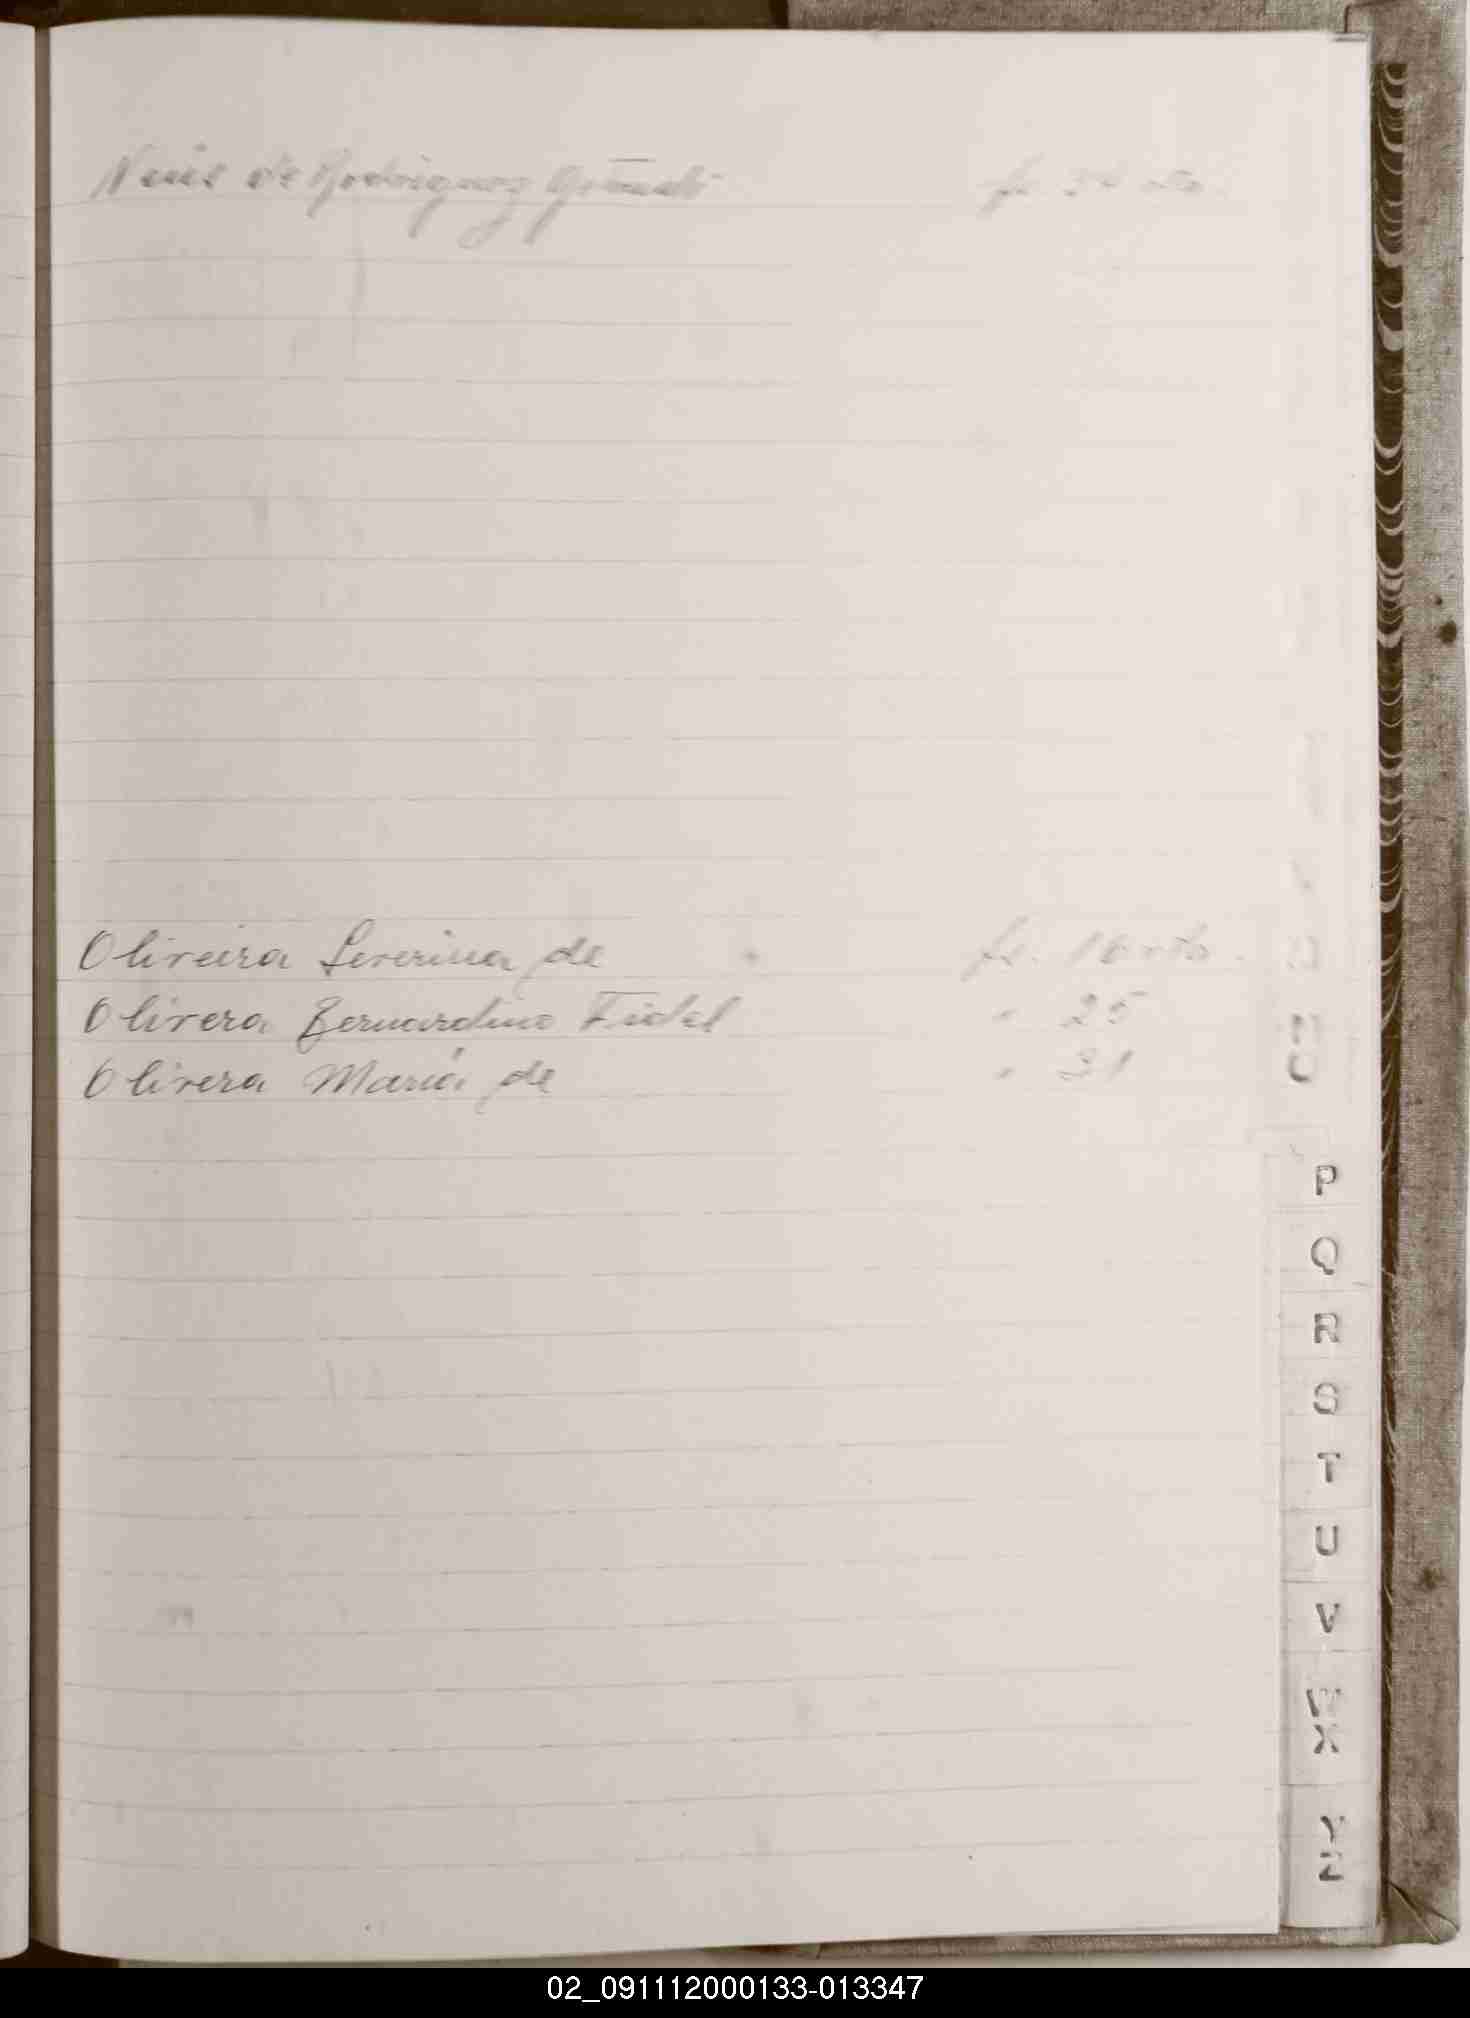 de Rodriguez
Oliveira Severina de fs. 16 vto.
Olivera Bernardino Fidel " 25
Olivera María de " 31
Ñ
O
P
Q
R
S
T
U
V
W
X
Y
Z
02_091112000133-013347